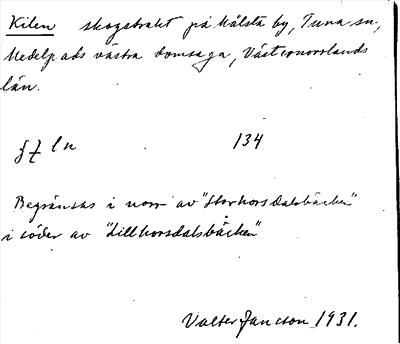 Kilen skogstrakt på Målsta by, Tuna sn,
Medelpads västra domsaga, Västernorrlands
län.
134
Begränsas i norr av "Storhorsdalsbäcken"
i söder av "Lillhorsdalsbäcken"
Valter Jansson 1931.